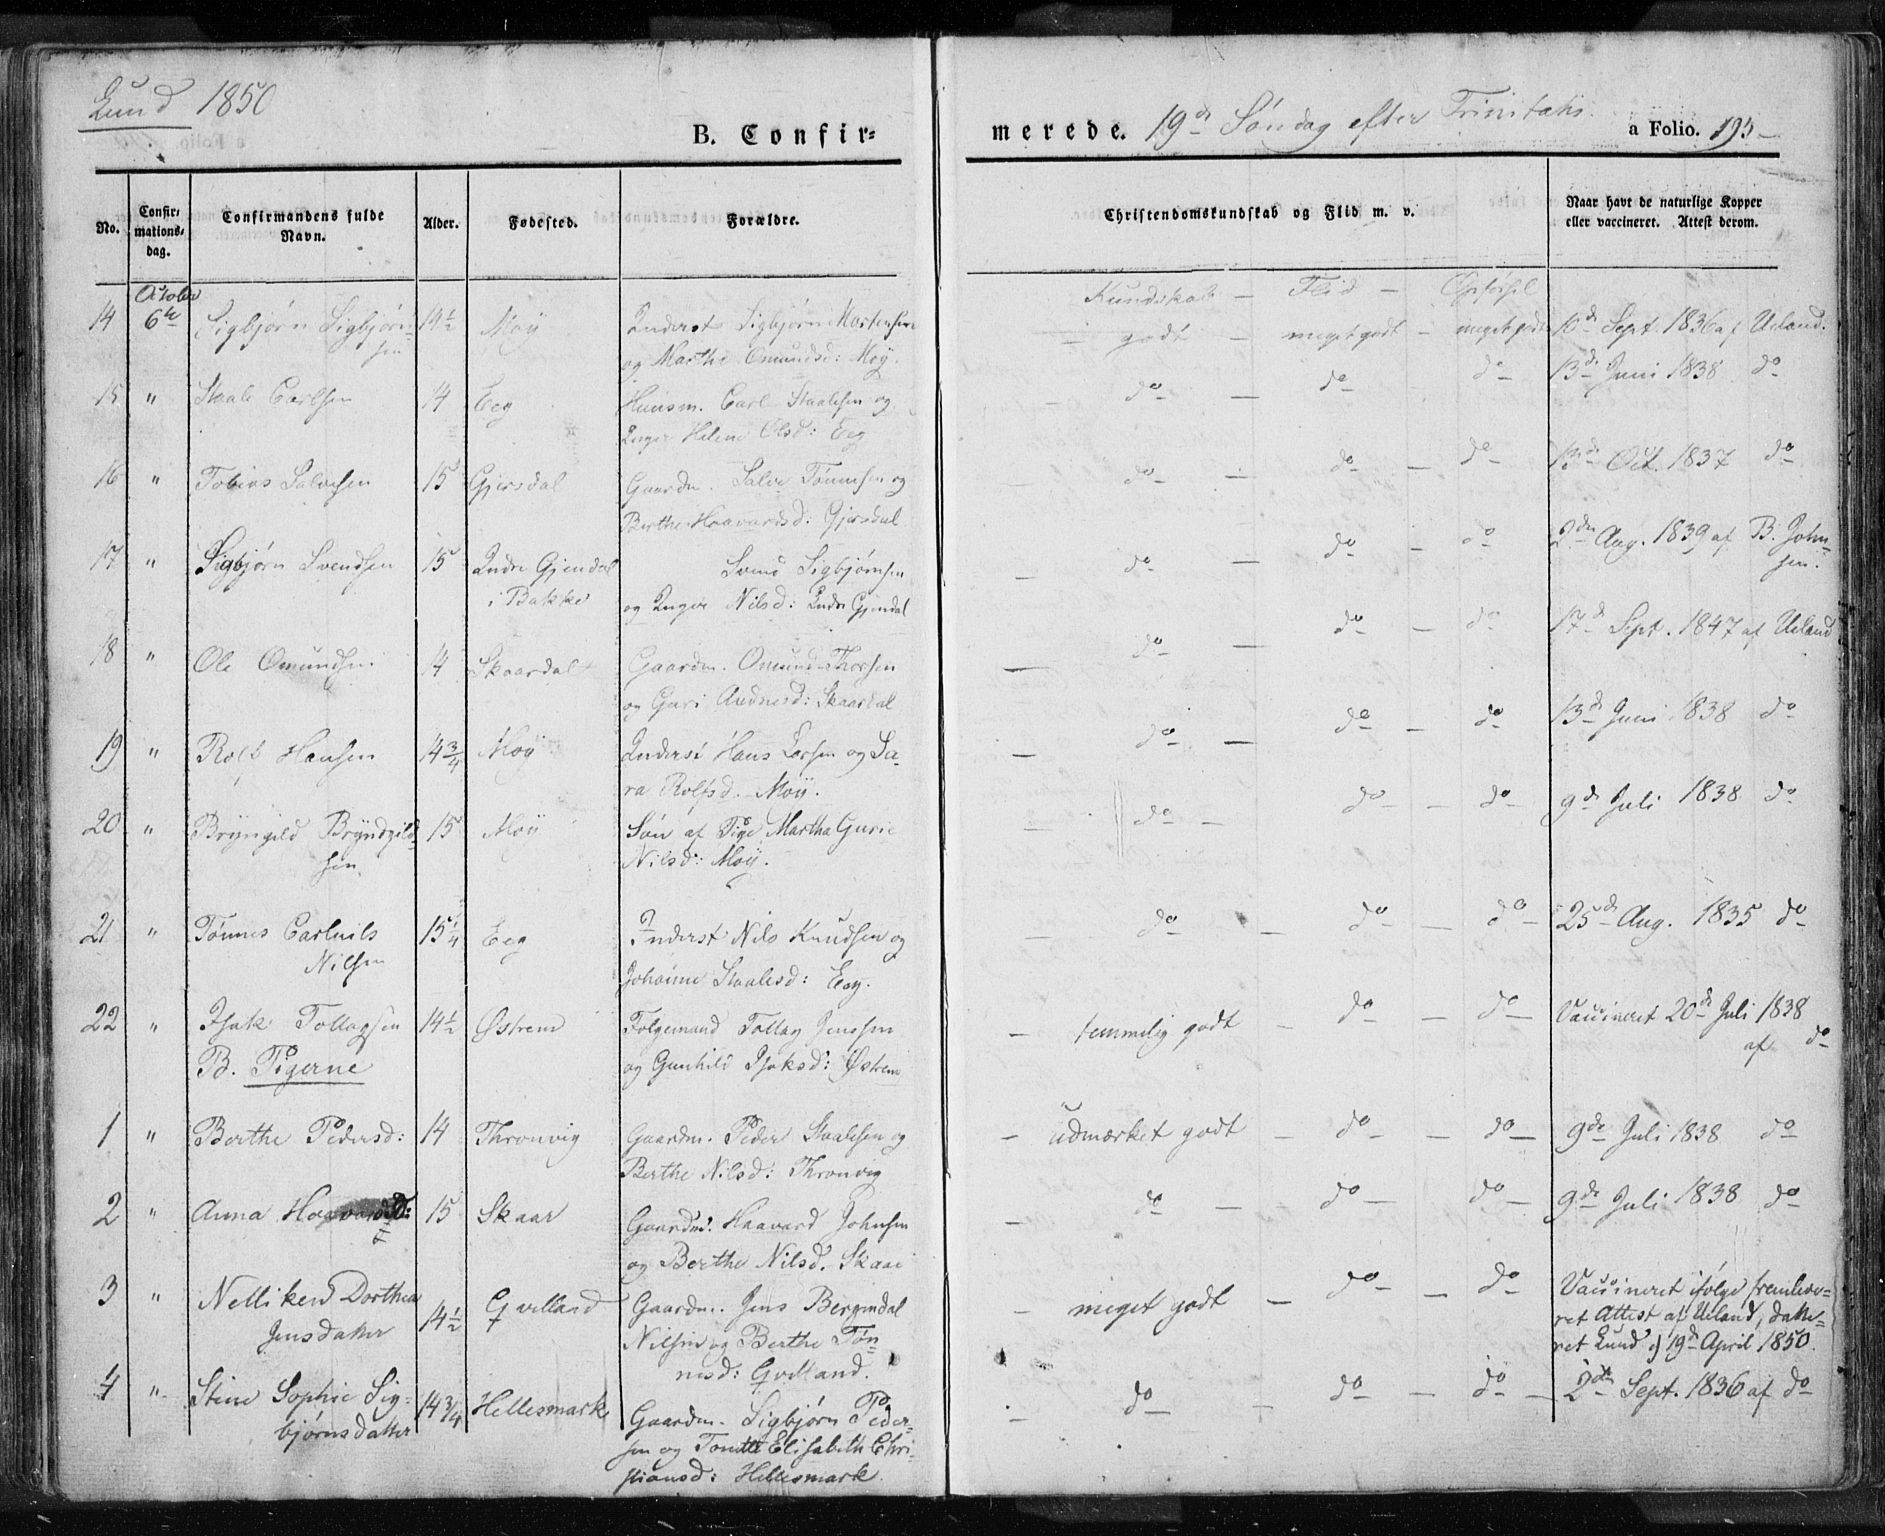 Lund 1850
B. Confirmerede. 19d Søndag efter Trinitatis.
a Folio. 195
No.
Confirmationsdag.
Confirmandens fulde Navn.
Alder.
Fødested.
Forældre.
Christendomskundskab og Flid m. v.
Naar havt de naturlige Kopper eller vaccineret. Attest derom.
October
Kundskab – Flid – Opførsel
14 6te Sigbjørn Sigbjørn- 14½ Moÿ Inderst Sigbjørn Mortensen – godt – meget godt – meget godt 10d Sept. 1836 af Ueland.
sen og Marthe Omundsd: Moÿ.
15 " Staale Carlsen 14 Eeg Huusm. Carl Staalesen og – do – do – do – 13d Juni 1838 do
Inger Helene Olsd: Eeg
16 " Tobias Salvesen 15 Gjersdal Gaardm. Salve Tønnesen og do – do – do – 13d Oct. 1837 do
Berthe Haavardsd: Gjersdal
17 " Sigbjørn Svendsen 15 Indre Gjendal Svend Sigbjørnsen – do – do – do 2den Aug. 1839 af B. John-
i Bakke og Inger Nilsd: Indr Gjendal sen.
18 " Ole Omundsen 14 Skaardal Gaardm. Omund Thorsen – do – do – do 17d Sept. 1847 af Ueland
og Guri Aadnesd: Skaardal
19 " Rolf Hansen 14¾ Moÿ Inderst Hans Larsen og Sa- – do – do – do 13d Juni 1838 do
ra Rolfsd. Moÿ.
20 " Bryngild Bryndgild- 15 Moÿ Søn af Pige Martha Gurie – do – do – do 9d Juli 1838 do
sen Nilsd: Moÿ.
21 " Tønnes Carlnils 15¼ Eeg Inderst Nils Knudsen og – do – do – do 25d Aug. 1835 do
Nilsen Johanne Staalesd: Eeg.
22 " Isak Tollagsen 14½ Østrem Folgemand Tollag Jenssen – temmelig godt – do – do – Vaccineret 20d Juli 1838
B. Pigerne og Gunhild Isaksd: Østrem af do
1 " Berthe Pedersd: 14 Thronvig Gaardm. Peder Staalesen og – udmærket godt – do – do – 9de Juli 1838 do
Berthe Nilsd: Thronvig
2 " Anna Haavardsd: 15 Skaar Gaardm. Haavard Johnsen – do – do – do – 9de Juli 1838 do
og Berthe Nilsd. Skaar
3 " Nelliken Dorthea 14½ Qvelland Gaardm. Jens Bergendal – meget godt – do – do Vaccineret ifølge fremleve-
Jensdatter Nilsen og Berthe Tøn- ret Attest af Ueland, date-
nesd: Qvelland. ret Lund d 19d April 1850.
4 " Stine Sophie Sig- 14¾ Hellesmark Gaardm. Sigbjørn Peder- – do – do – do – 2den Sept. 1836 af do
bjørnsdatter sen og Tonette Elisabeth Chri-
stiansd: Hellesmark.